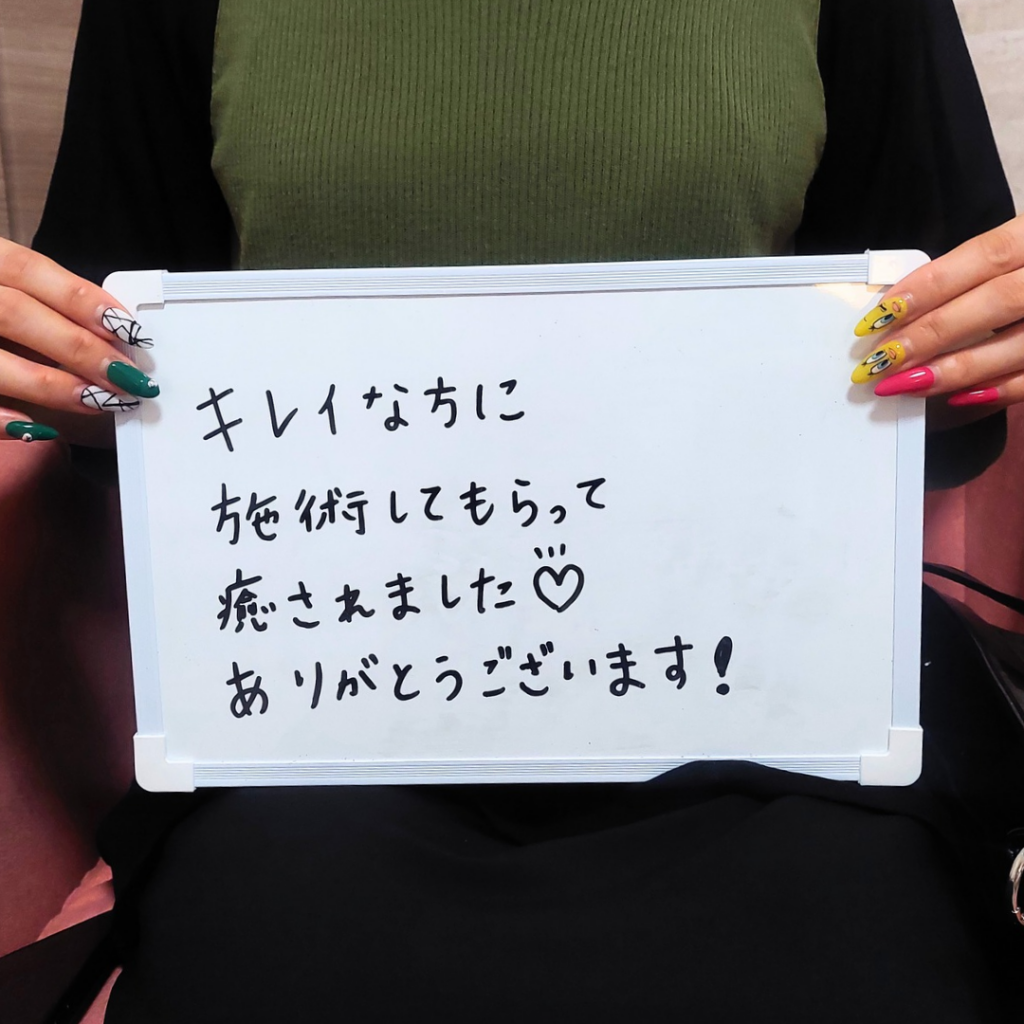 キレイな方に
施術してもらって
癒されました♡
ありがとうございます!